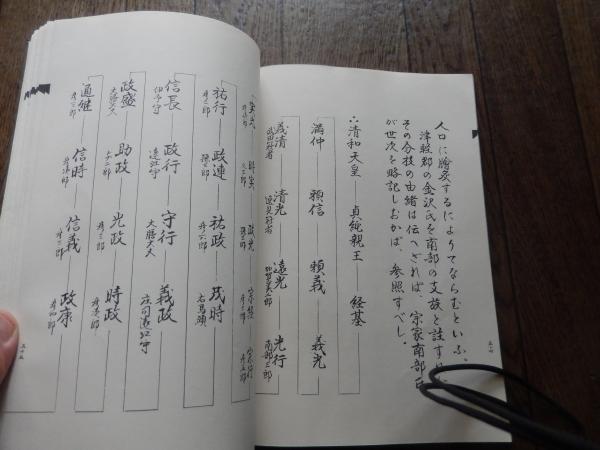 人口に膾炙するによりてならむといふ。
津軽郡の金沢氏を南部の支族と註す
その分技の由緒は伝へざれば、宗家南部氏
が世次を略記しおかば、参照すべし。
∴清和天皇 貞純親王 経基
満仲 頼信 頼義 義光
義清 清光 遠光 光行
武田冠者 逸見冠者 加賀美二郎 南部三郎
実光 時実 政光 宗経 宗行
祐行 政連 祐政 茂時
彦二郎 孫三郎 彦六郎 右馬頭
信長 政行 守行 義政
伊予守 遠江守 大膳大夫 庄司遠江守
政盛 助政 光政 時政
大膳大夫 与二郎 彦三郎
通継 信時 信義 政康
彦三郎 彦三郎 彦四郎
五十四
五十五